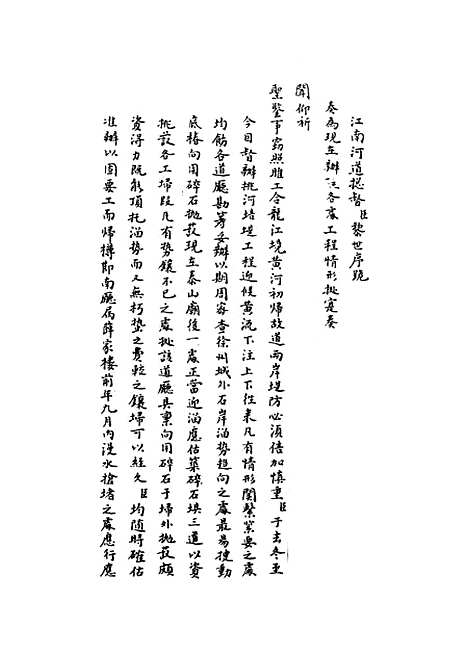 江南河道總督臣黎世序跪
奏為現在辦理各處工程情形恭摺奏
聞仰祈
聖鑒事竊照睢工合龍江境黃河初歸故道兩岸堤防必須倍加慎重臣于去冬至
今日督辦挑河培堤工程迎候黃流下注上下往來凡有情形關繫緊要之處
均飭各道廳勘籌妥辦以期周密查徐州城外石岸溜勢趨向之處最易搜動
底樁向用碎石拋護現在泰山廟後一處正當迎溜應估築碎石垻三道以資
挑護各工埽段凡有勢鑲不已之處批該道廳具稟向用碎石于埽外拋護頗
資得力既能頂托溜勢而又無朽蟄之費較之鑲埽可以經久臣均隨時確估
准辦以固要工而歸撙節南廳屬薛家樓前年九月內洗水搶堵之處應行應